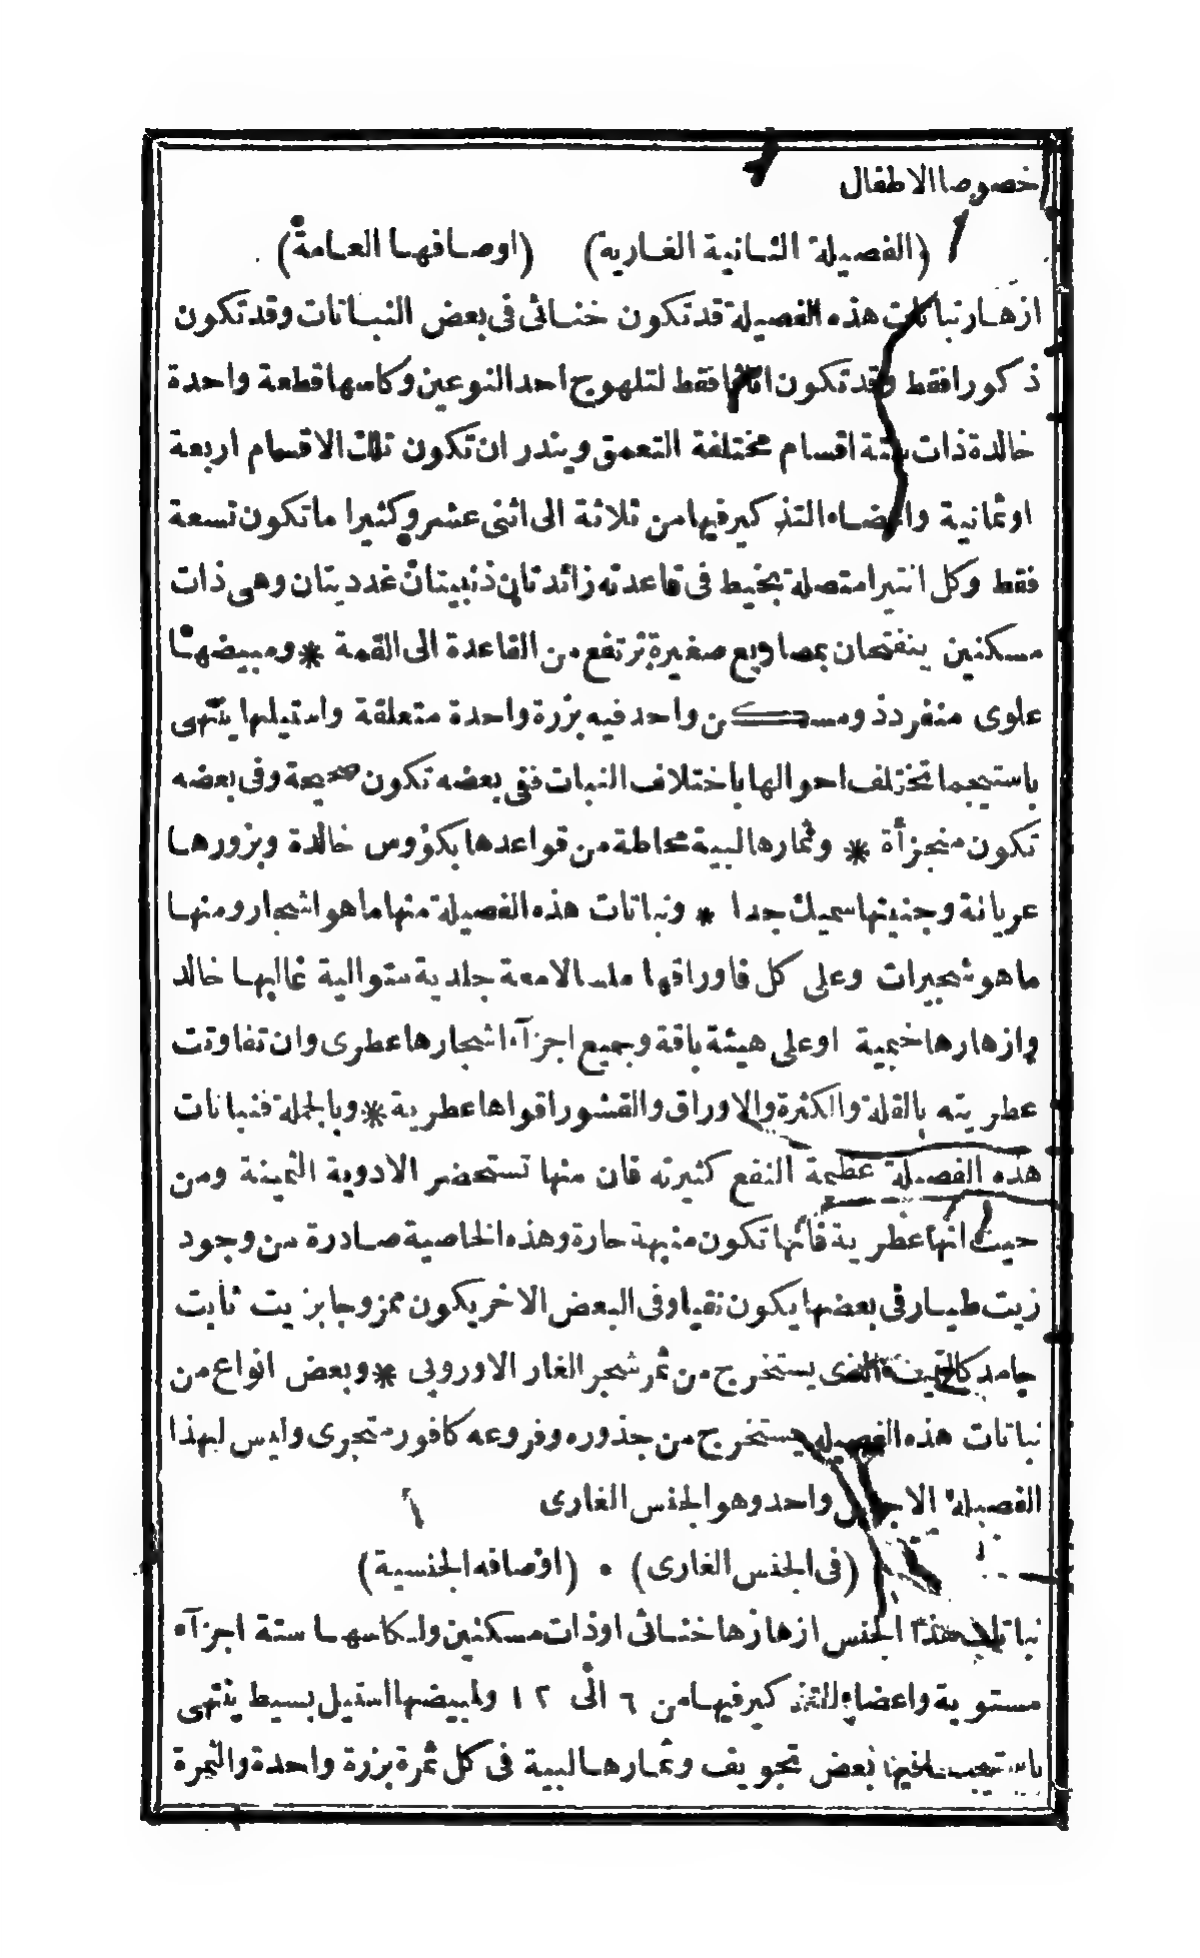 خصوصا الاطفال
(الفصيلة الثانية الغارية) (اوصافها العامة)
ازهار نباتات هذه الفصيلة قد تكون خنثائى فى بعض النباتات وقد تكون
ذكورا فقط وقد تكون اناثا فقط لتلهوج احد النوعين وكاسها قطعة واحدة
خالدة ذات ستة اقسام مختلفة التعمق ويندر ان تكون تلك الاقسام اربعة
اوثمانية واعضاء التذكير فيها من ثلاثة الى اثنى عشر وكثيرا ما تكون تسعة
فقط وكل انتيرا متصلة بخيط فى قاعدته زائدتان ذنبيتان غدديتان وهى ذات
مسكنين ينفتحان بمصاريع صغيرة ترتفع من القاعدة الى القمة * ومبيضها
علوى منفرد ذو مسكن واحد فيه بزرة واحدة متعلقة واستيلها ينتهى
باستيجما تختلف احوالها باختلاف النبات ففى بعضه تكون صحيحة وفى بعضه
تكون متجزأة * وثمارها لبية محاطة من قواعدها بكؤوس خالدة وبزورها
عريانة وجنينها سميك جدا * ونباتات هذه الفصيلة منها ما هو اشجار ومنها
ما هو شجيرات وعلى كل فاوراقها ملسا لامعة جلدية متوالية غالبها خالد
وازهارها خيمية او على هيئة باقة وجميع اجزاء اشجارها عطرى وان تفاوتت
عطريته بالقلة والكثرة والاوراق والقشور اقواها عطرية * وبالجملة فنباتات
هذه الفصيلة عظيمة النفع كثيرته فان منها تستحضر الادوية الثمينة ومن
حيث انها عطرية فانها تكون منبهة حارة وهذه الخاصية صادرة من وجود
زيت طيار فى بعضها يكون نقيا وفى البعض الاخر يكون ممزوجا بزيت ثابت
جامد الذى يستخرج من ثمر شجر الغار الاوروبى * وبعض انواع من
نباتات هذه الفصيلة يستخرج من جذوره وفروعه كافور متجرى وليس لهذا
الفصيلة الا واحد وهو الجنس الغارى
(فى الجنس الغارى) • (اوصافه الجنسية)
نباتات هذا الجنس ازهارها خنثائى اوذات مسكنين ولكاسها ستة اجزاء
مستوية واعضاء التذكير فيها من ٦ الى ١٢ ولمبيضها استيل بسيط ينتهى
بعض تجويف وثمارها لبية فى كل ثمرة بزرة واحدة والثمرة